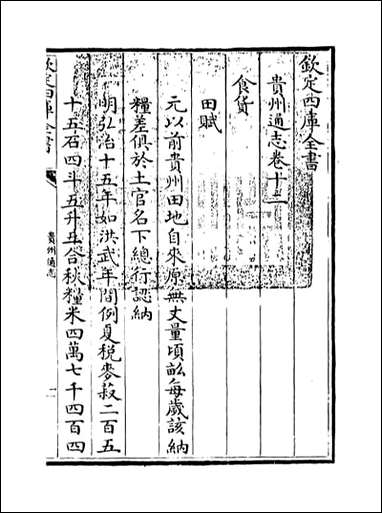 欽定四庫全書
貴州通志卷十二
食貨
田賦
元以前貴州田地自來原無丈量頃畝每歲該納
糧差俱於土官名下總行認納
明弘治十五年如洪武年間例夏税麥菽二百五
十五石四斗五升五合秋糧米四萬七千四百四
欽定四庫全書
貴州通志